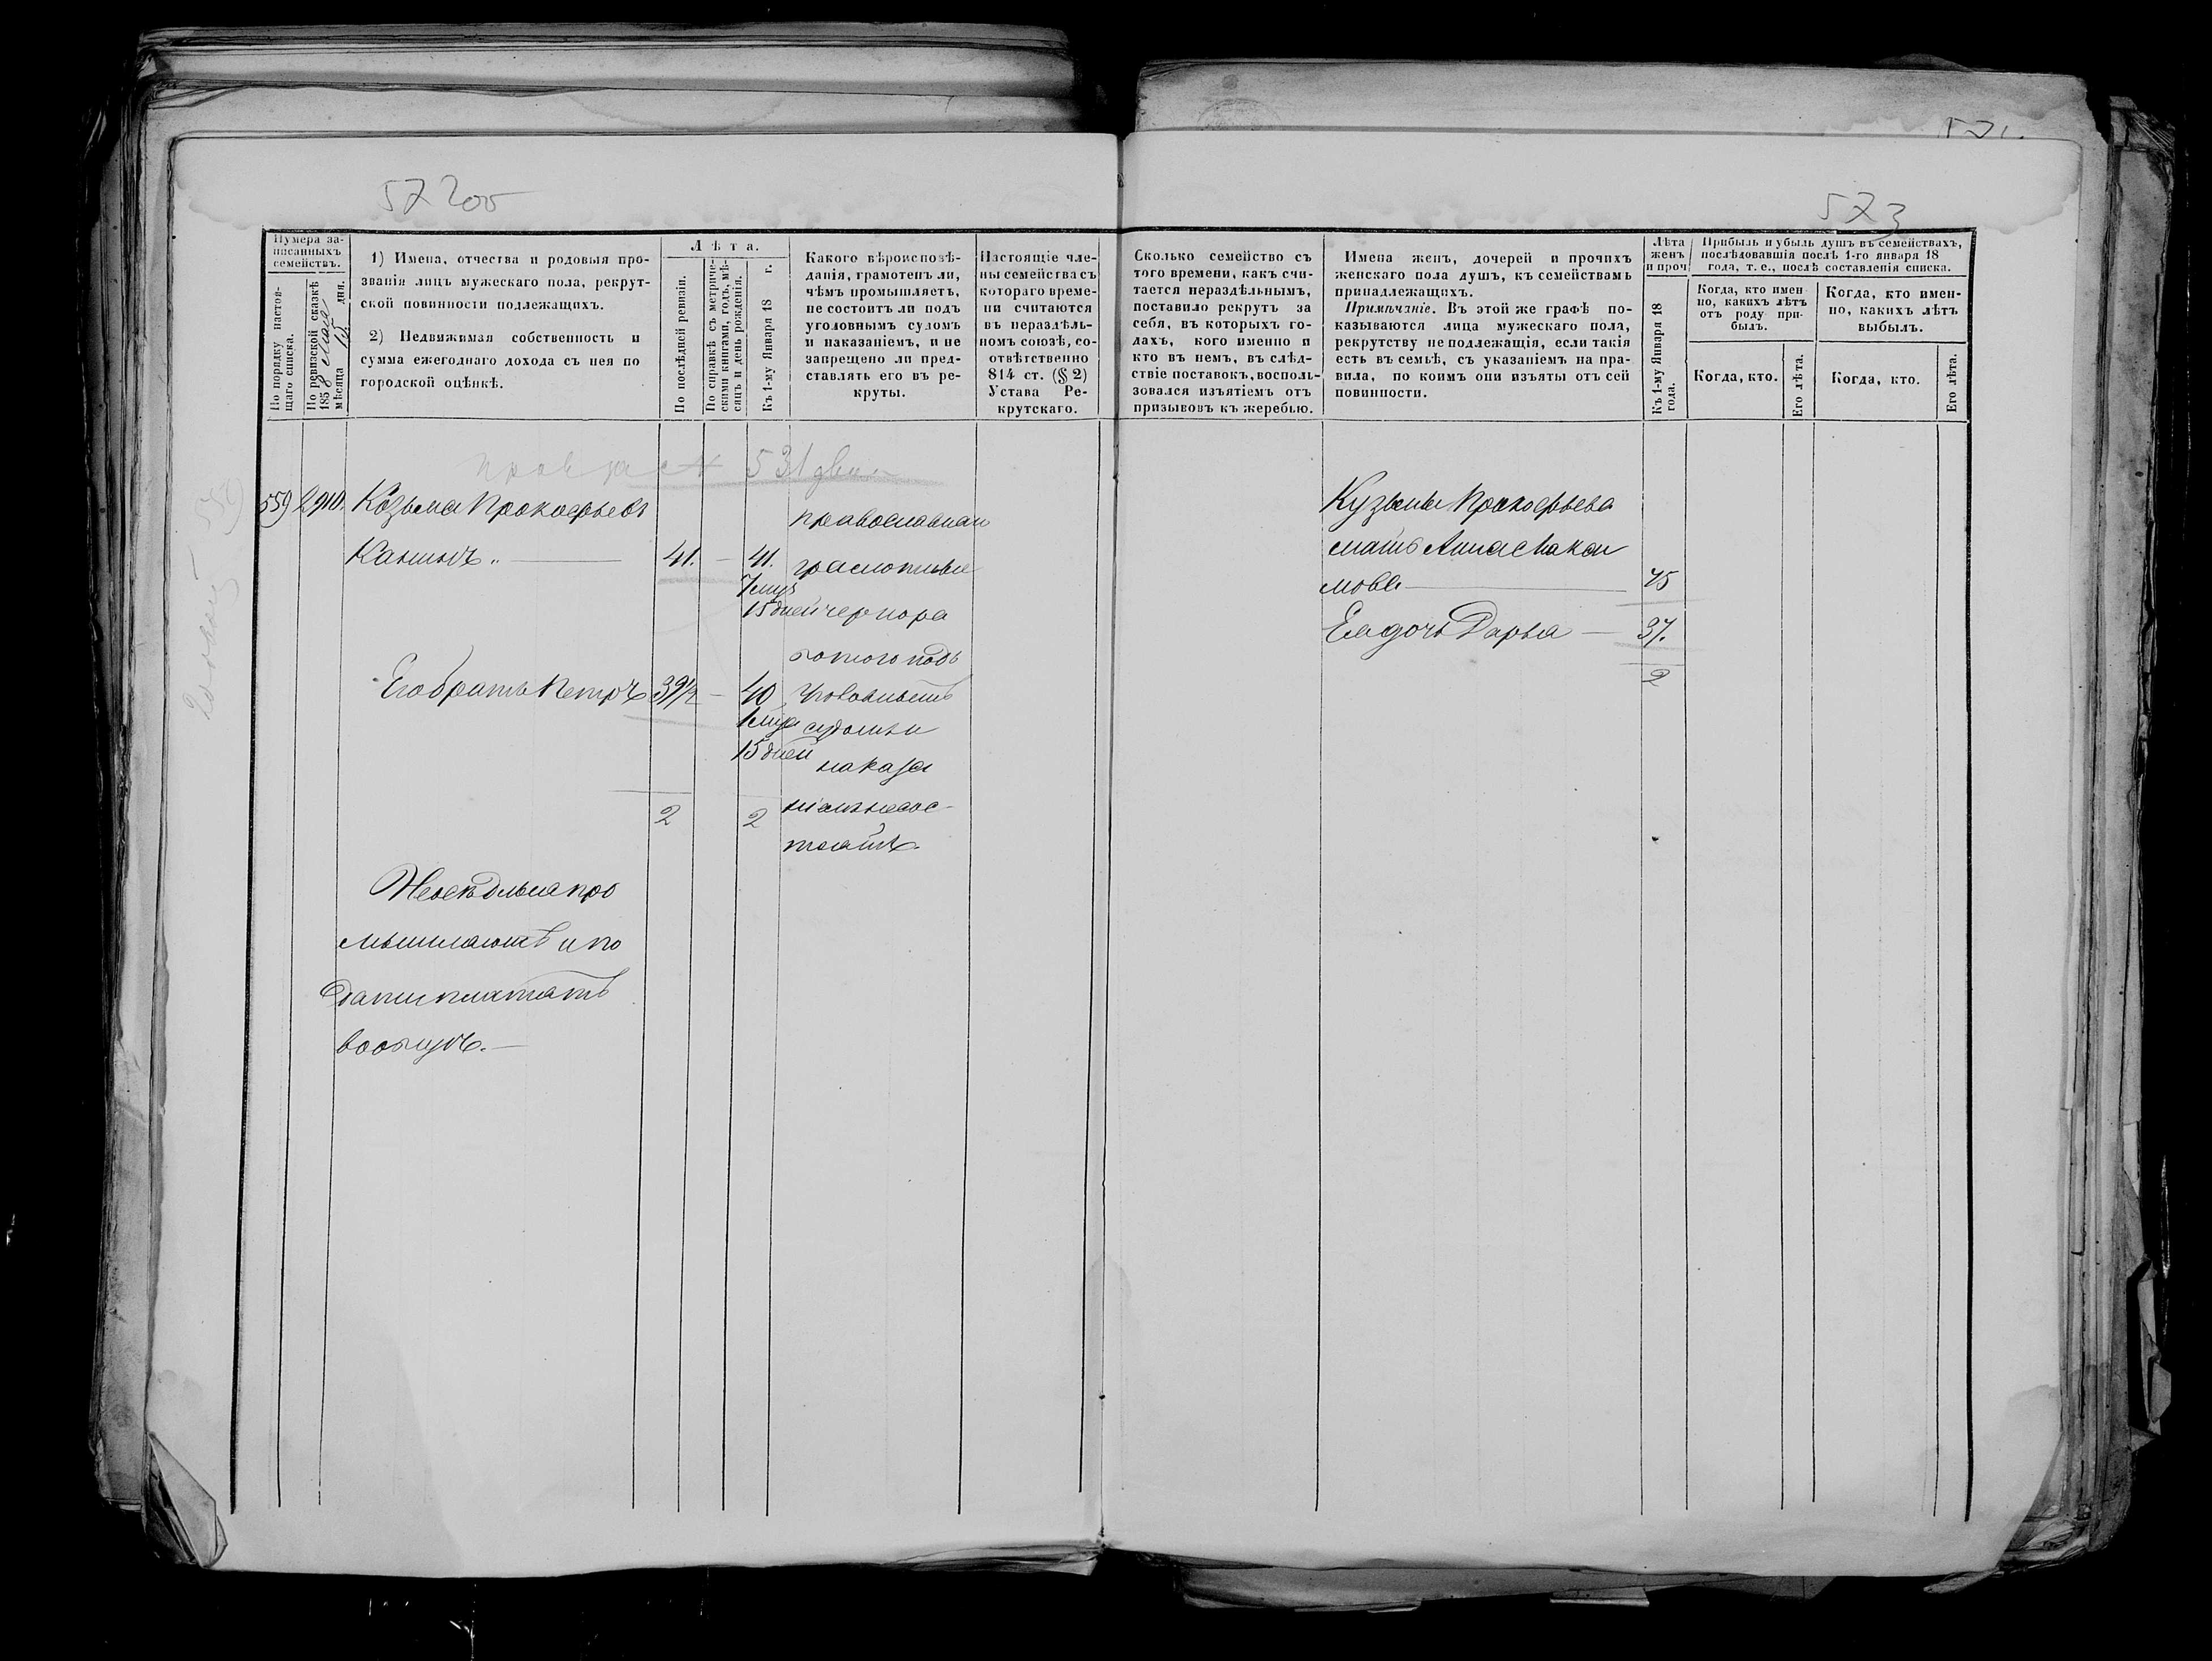 57 2об
573
Нумера записанныхъ семействъ.
По порядку настоящаго списка.
По ревизской сказкѣ 1858 мая мѣсяца 15 дня.
1) Имена, отчества и родовыя прозванія лицъ мужескаго пола, рекрутской повинности подлежащихъ.
2) Недвижимая собственность и сумма ежегоднаго дохода съ нея по городской оцѣнкѣ.
Лѣта.
По послѣдней ревизіи.
По справкѣ съ метрическими книгами, годъ, мѣсяцъ и день рожденія.
Къ 1-му Января 18 г.
Какого вѣроисповѣданія, грамотенъ ли, чѣмъ промышляетъ, не состоитъ ли подъ уголовнымъ судомъ и наказаніемъ, и не запрещено ли представлять его въ рекруты.
Настоящіе члены семейства съ котораго времени считаются въ нераздѣльномъ союзѣ, соотвѣтственно 814 ст. (§ 2) Устава Рекрутскаго.
Сколько семейство съ того времени, какъ считается нераздѣльнымъ, поставило рекрутъ за себя, въ которыхъ годахъ, кого именно и кто въ немъ, въ слѣдствіе поставокъ, воспользовался изъятіемъ отъ призывовъ къ жеребью.
Имена женъ, дочерей и прочихъ женскаго пола душъ, къ семействамъ принадлежащихъ.
Примѣчаніе. Въ этой же графѣ показываются лица мужескаго пола, рекрутству не подлежащія, если такія есть въ семьѣ, съ указаніемъ на правила, по коимъ они изъяты отъ сей повинности.
Лѣта женъ и проч
Къ 1-му Января 18 года.
Прибыль и убыль душъ въ семействахъ, послѣдовавшія послѣ 1-го января 18 года, т. е., послѣ составленія списка.
Когда, кто именно, какихъ лѣтъ отъ роду прибылъ.
Когда, кто именно, какихъ лѣтъ выбылъ.
Когда, кто.
Его лѣта.
Когда, кто.
Его лѣта.
531
559 2910. Козьма Прокофьевъ
Канинъ 41. — 41.
7 мцъ
15 дней
Его братъ Петръ 39½ — 40
1 мцъ
15 дней
2 2
православнаи
грамотные
чернора
ботою подъ
уголовнымъ
судомъ и
наказа
ніемъ несос
тоятъ.
Нераздѣльна про
мышляютъ и по
дати платятъ
вообще.
Кузьмы Прокофьева
мать Анна Макси
мова — 75
Ея дочь Дарья — 37.
2